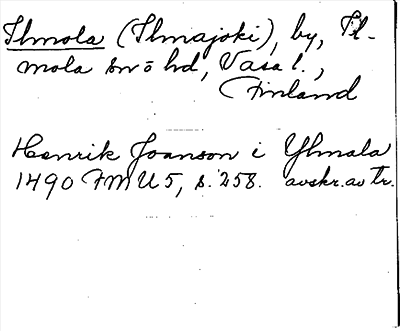 Ilmola (Ilmajoki), by, Il-
mola sn o hd, Vasa l.,
Finland
Henrik Joanson i Ylmala
1490 FMU 5, s. 258. avskr. av tr.